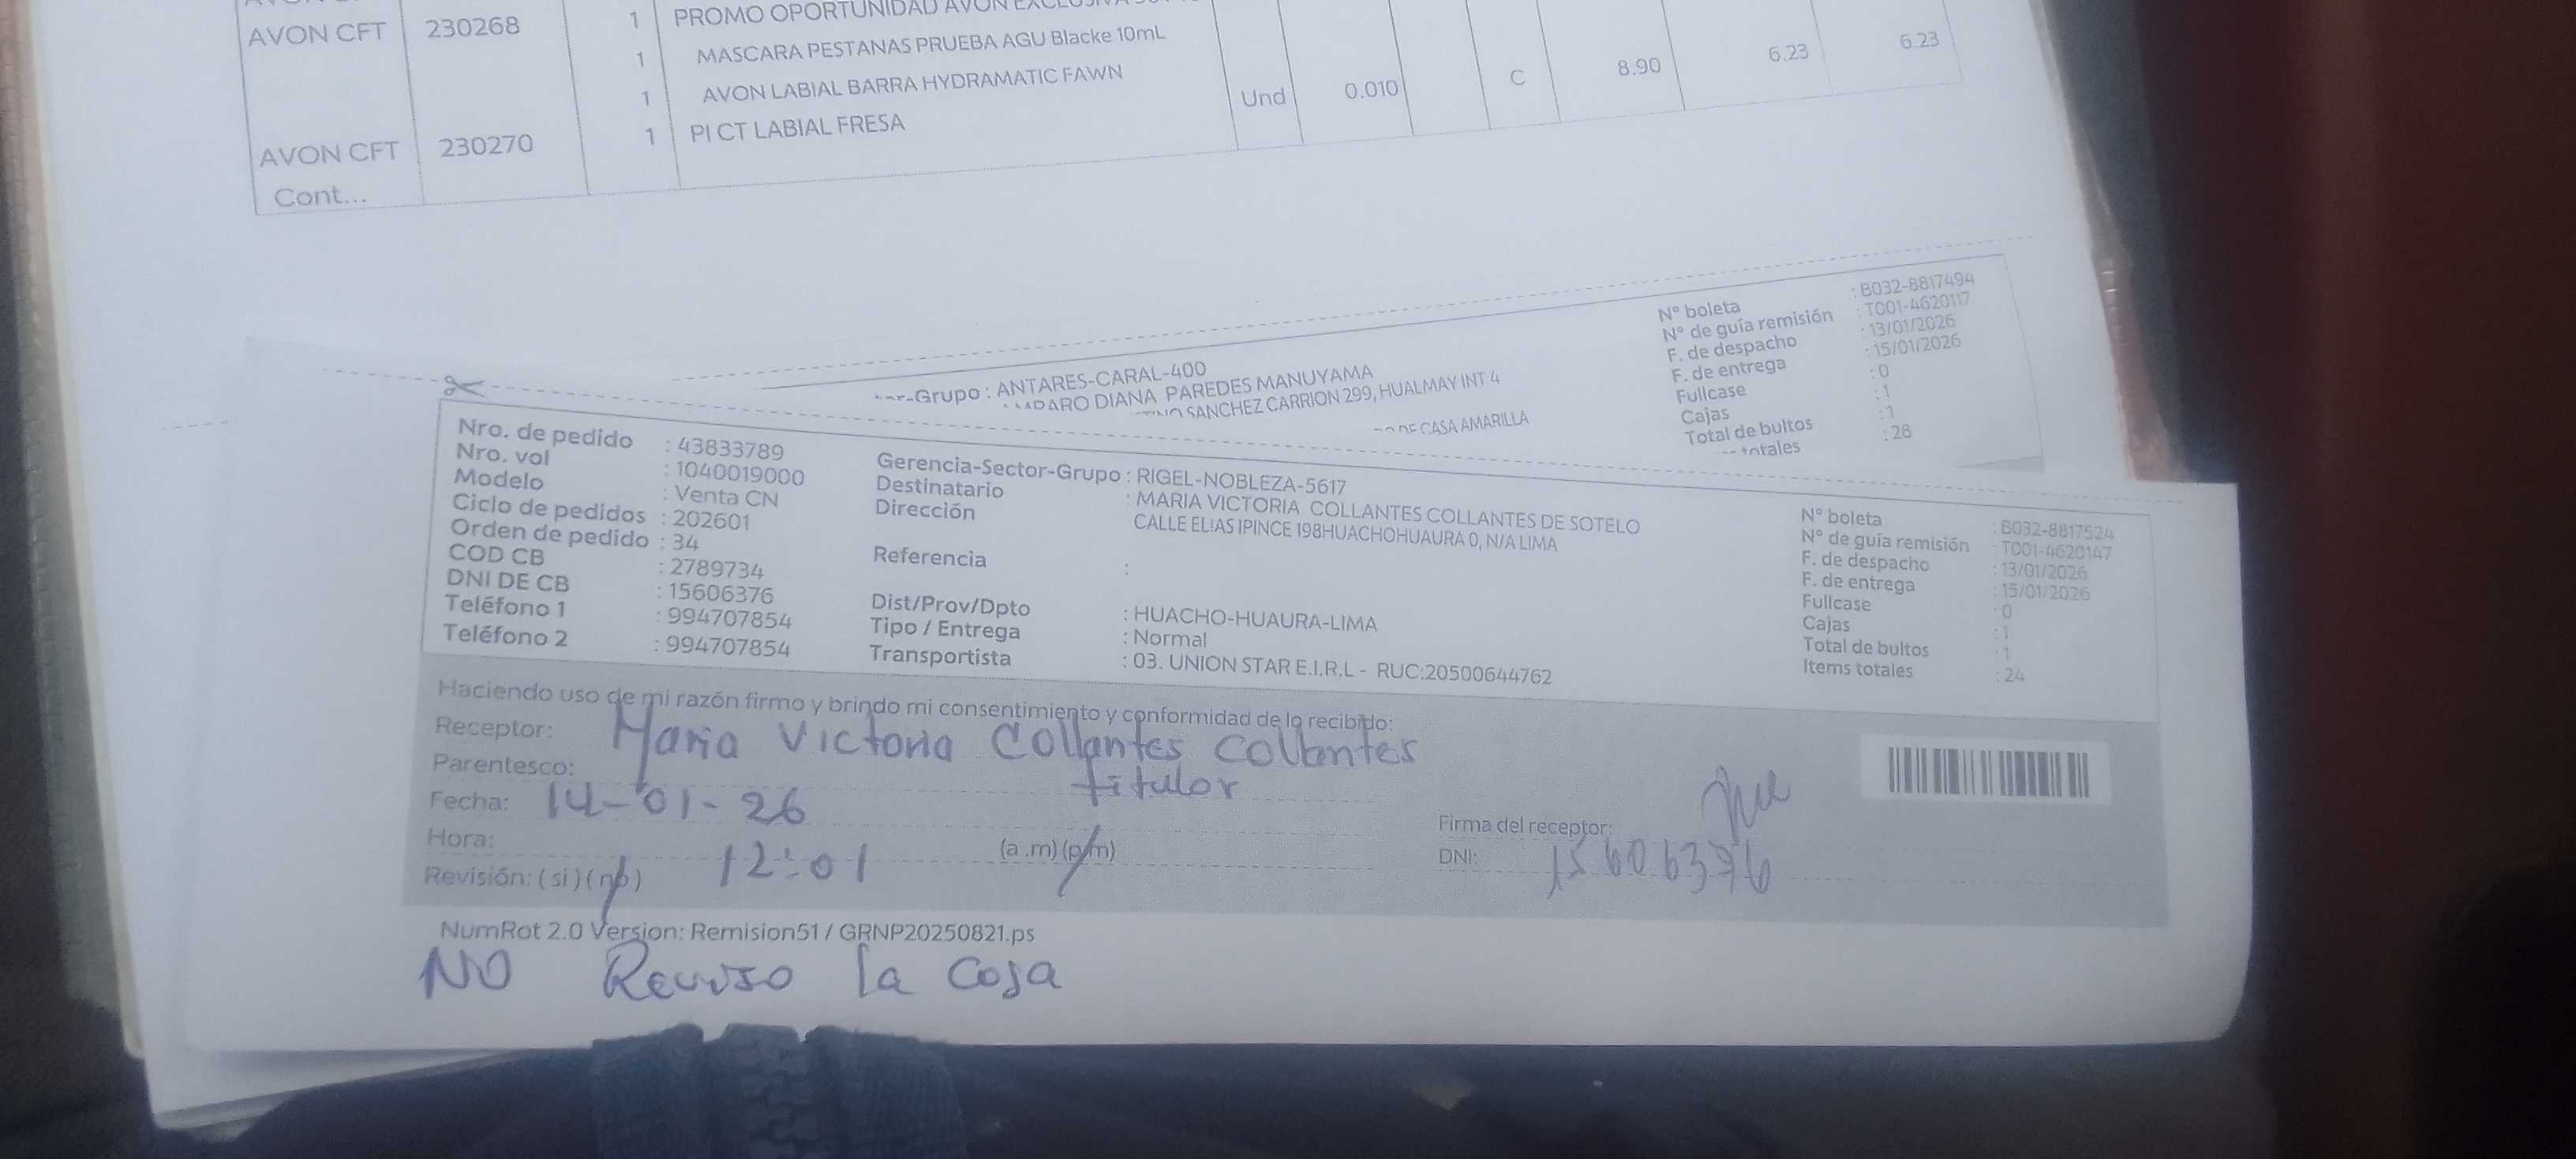 AVON CFT 230268 1 PROMO OPORTUNIDAD AVON
1 MASCARA PESTANAS PRUEBA AGU Blacke 10mL
1 AVON LABIAL BARRA HYDRAMATIC FAWN
AVON CFT 230270 1 PI CT LABIAL FRESA Und 0.010 C 8.90 6.23 6.23
Cont...
Grupo : ANTARES-CARAL-400
DIANA PAREDES MANUYAMA
SANCHEZ CARRION 299, HUALMAY INT 4
DE CASA AMARILLA
N° boleta : B032-8817494
N° de guía remisión : T001-4620117
F. de despacho : 13/01/2026
F. de entrega : 15/01/2026
Fullcase : 0
Cajas : 1
Total de bultos : 1
totales : 28
Nro. de pedido : 43833789
Nro. vol : 1040019000
Modelo : Venta CN
Ciclo de pedidos : 202601
Orden de pedido : 34
COD CB : 2789734
DNI DE CB : 15606376
Teléfono 1 : 994707854
Teléfono 2 : 994707854
Gerencia-Sector-Grupo : RIGEL-NOBLEZA-5617
Destinatario : MARIA VICTORIA COLLANTES COLLANTES DE SOTELO
Dirección CALLE ELIAS IPINCE 198HUACHOHUAURA 0, N/A LIMA
Referencia :
Dist/Prov/Dpto : HUACHO-HUAURA-LIMA
Tipo / Entrega : Normal
Transportista : 03. UNION STAR E.I.R.L - RUC:20500644762
N° boleta : B032-8817524
N° de guía remisión : T001-4620147
F. de despacho : 13/01/2026
F. de entrega : 15/01/2026
Fullcase : 0
Cajas : 1
Total de bultos : 1
Items totales : 24
Haciendo uso de mi razón firmo y brindo mi consentimiento y conformidad de lo recibido:
Receptor: Maria Victoria Collantes Collantes
Parentesco: titulor
Fecha: 14-01-26
Hora: 12:01 (a .m) (p/m)
Revisión: ( si ) ( no )
Firma del receptor:
DNI: 15606376
NumRot 2.0 Version: Remision51 / GRNP20250821.ps
NO la